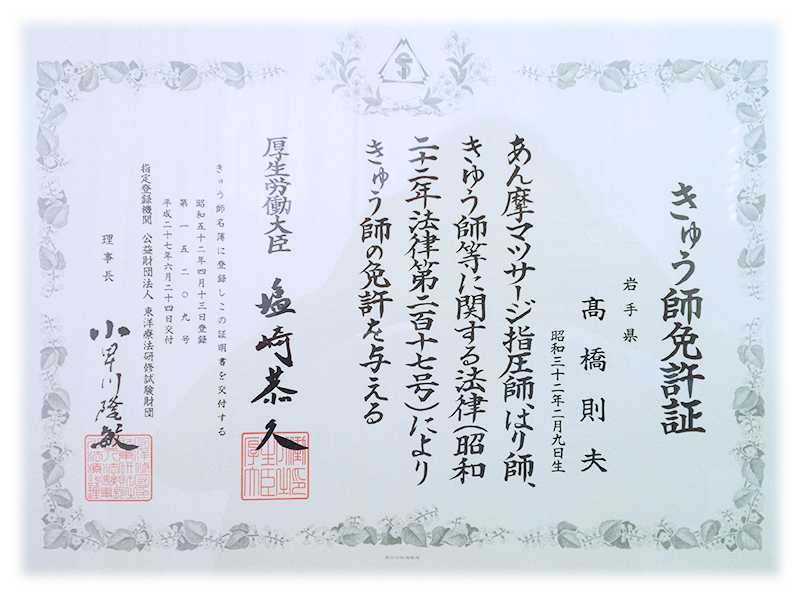 きゅう師免許証
岩手県
髙橋則夫
昭和三十二年二月九日生
あん摩マツサージ指圧師、はり師、
きゆう師等に関する法律(昭和
二十二年法律第二百十七号)により
きゅう師の免許を与える
厚生労働大臣 塩崎恭久
きゅう師名簿に登録しこの証明書を交付する
昭和五十二年四月十三日登録
第一五二〇九号
平成二十七年六月二十四日交付
指定登録機関 公益財団法人 東洋療法研修試験財団
理事長 小早川隆敏